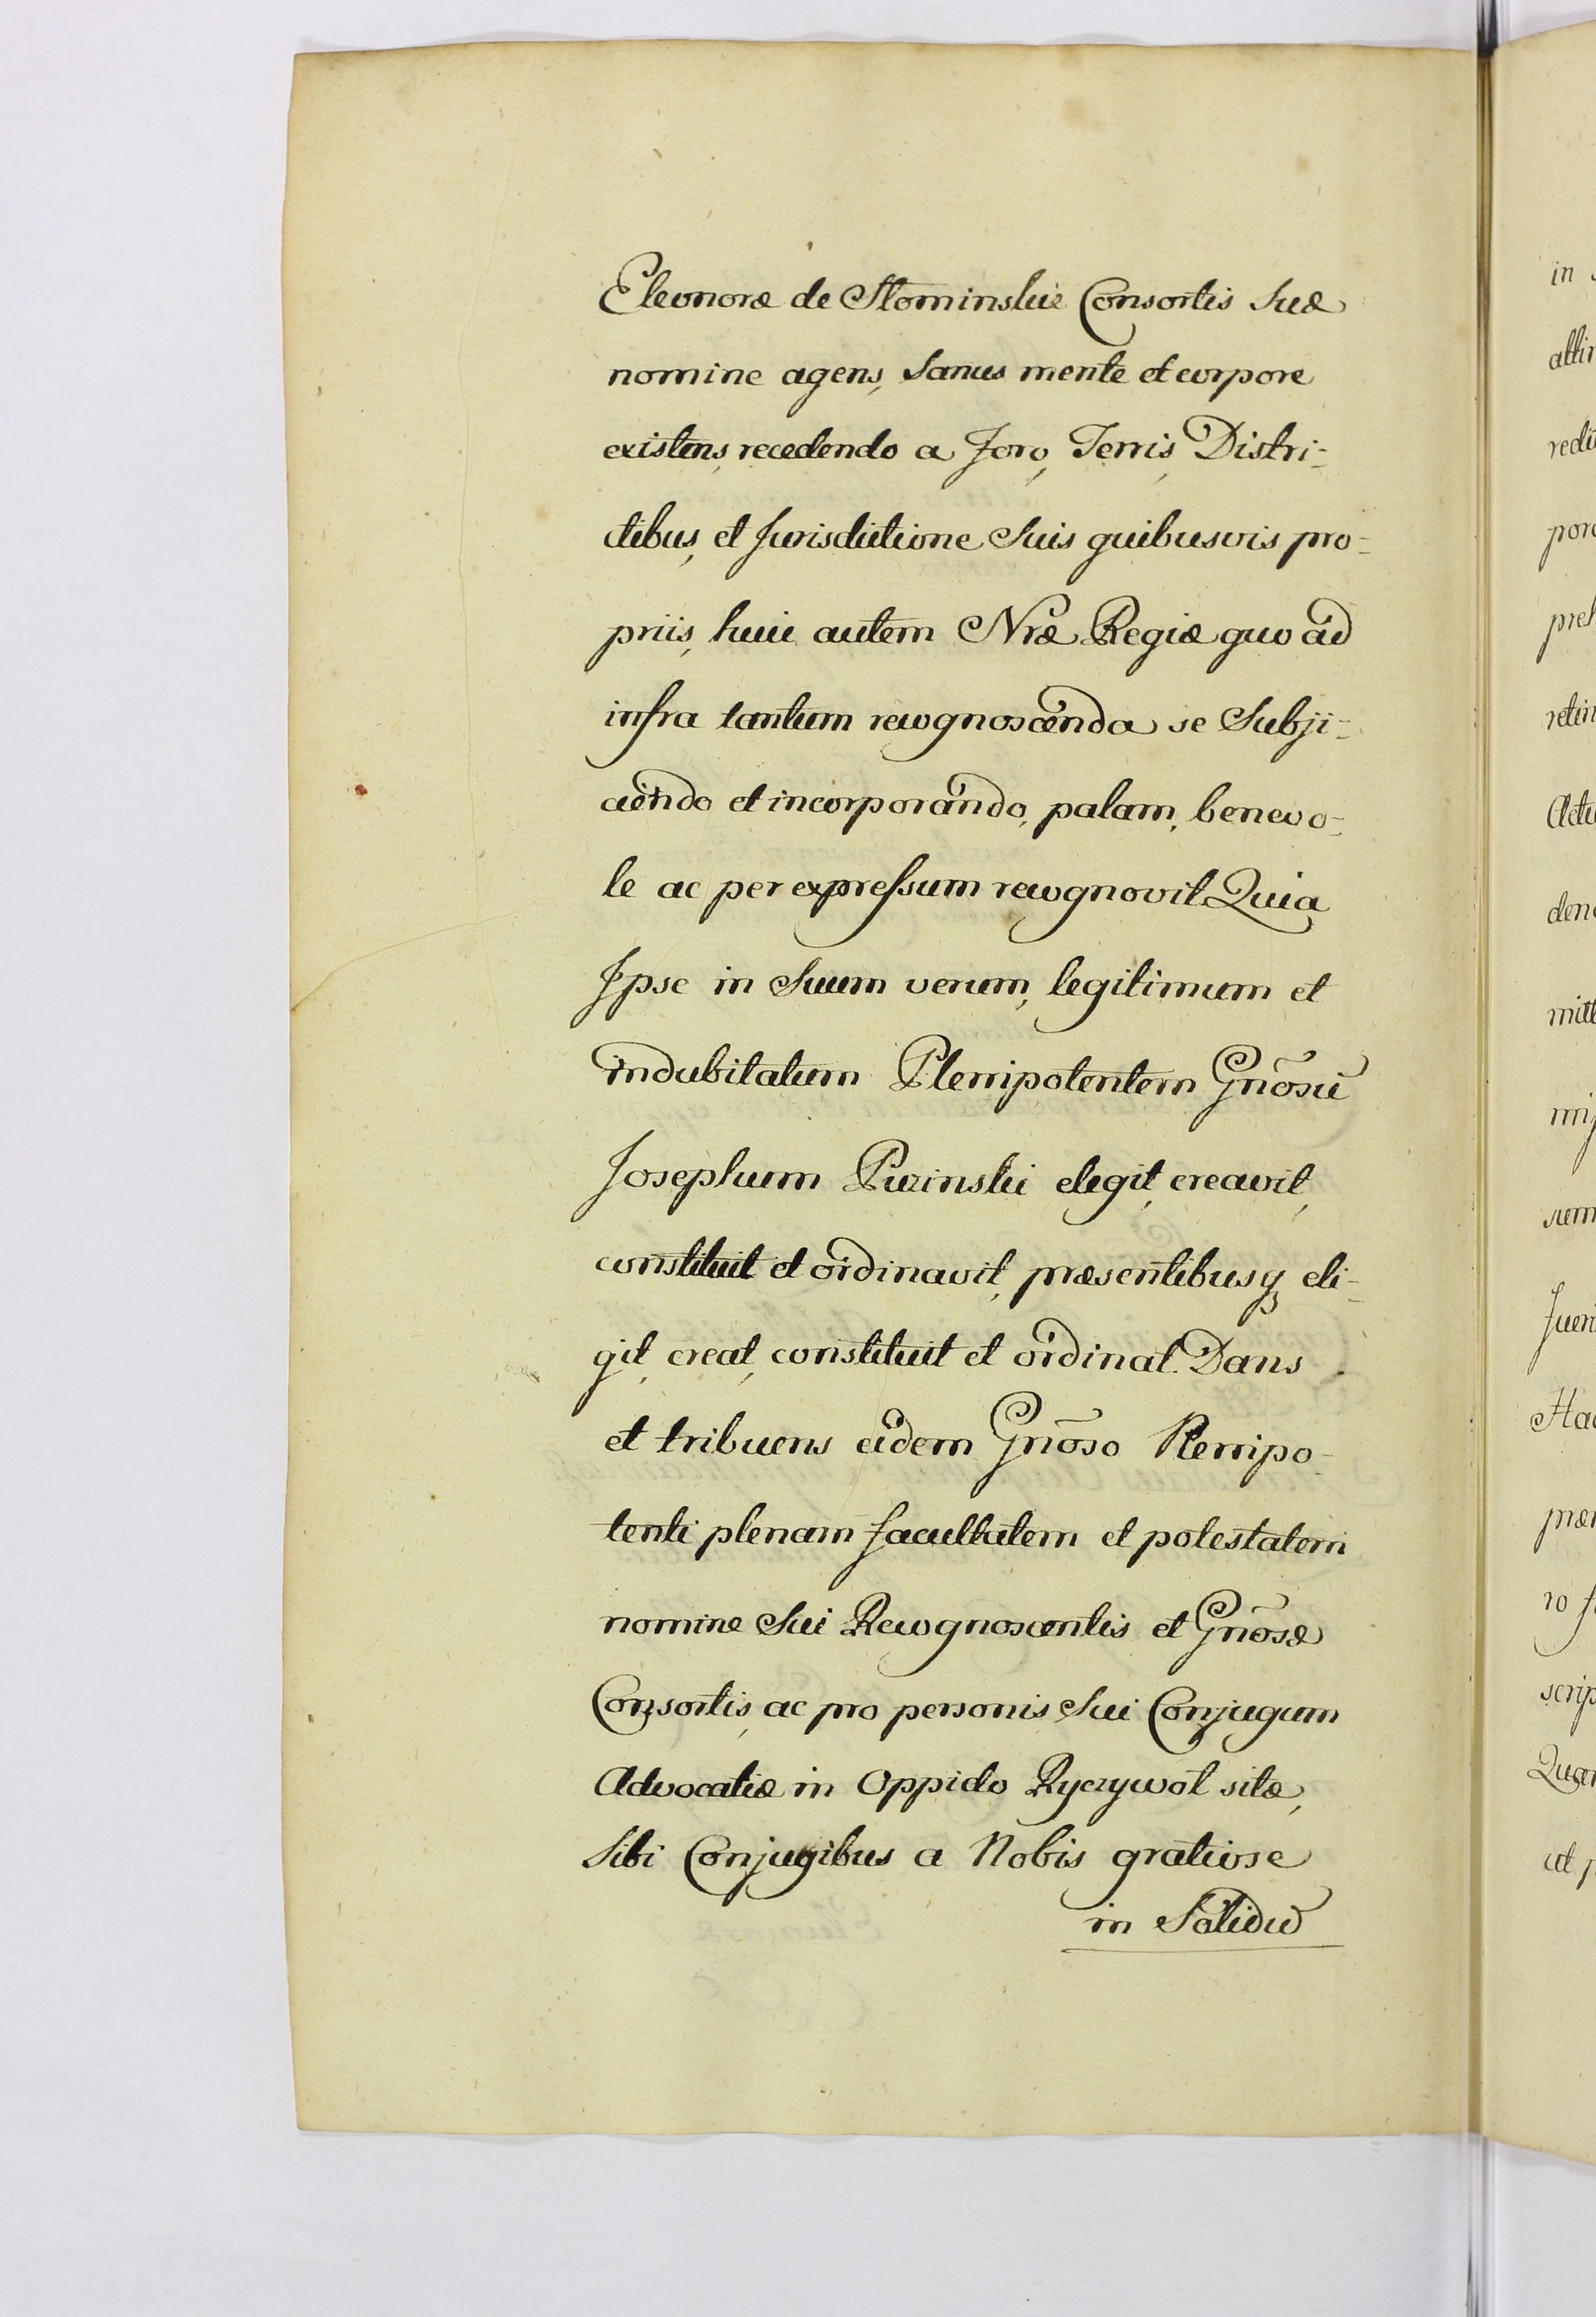 Eleonoræ de Słominskie Consortis Suæ
nomine agens, Sanus mente et corpore
existens, recedendo a Foro, Terris, Distri-
ctibus, et Jurisdictione Suis quibusvis pro-
priis, huic autem Nræ Regiæ quo ad
infra tantum recognoscenda se Subji-
ciendo et incorporando, palam, benevo-
le ac per expressum recognovit Quia
Ipse in Suum verum, legitimum et
indubitatum Plenipotentem Gnōsū
Josephum elegit, creavit,
constituit et ordinavit, præsentibusq3 eli-
git, creat, constituit et ordinat. Dans
et tribuens eidem Gnōso Plenipo-
tenti plenam facultatem et potestatem
nomine Sui Recognoscentis et Gnōsæ
Consortis, ac pro personis Sui Conjugum
Advocatiæ in Oppido Ryczywoł sitæ,
Sibi Conjugibus a Nobis gratiose
in Solidū
in
redu
Actu
den
mitt
Juri
scrip
ut